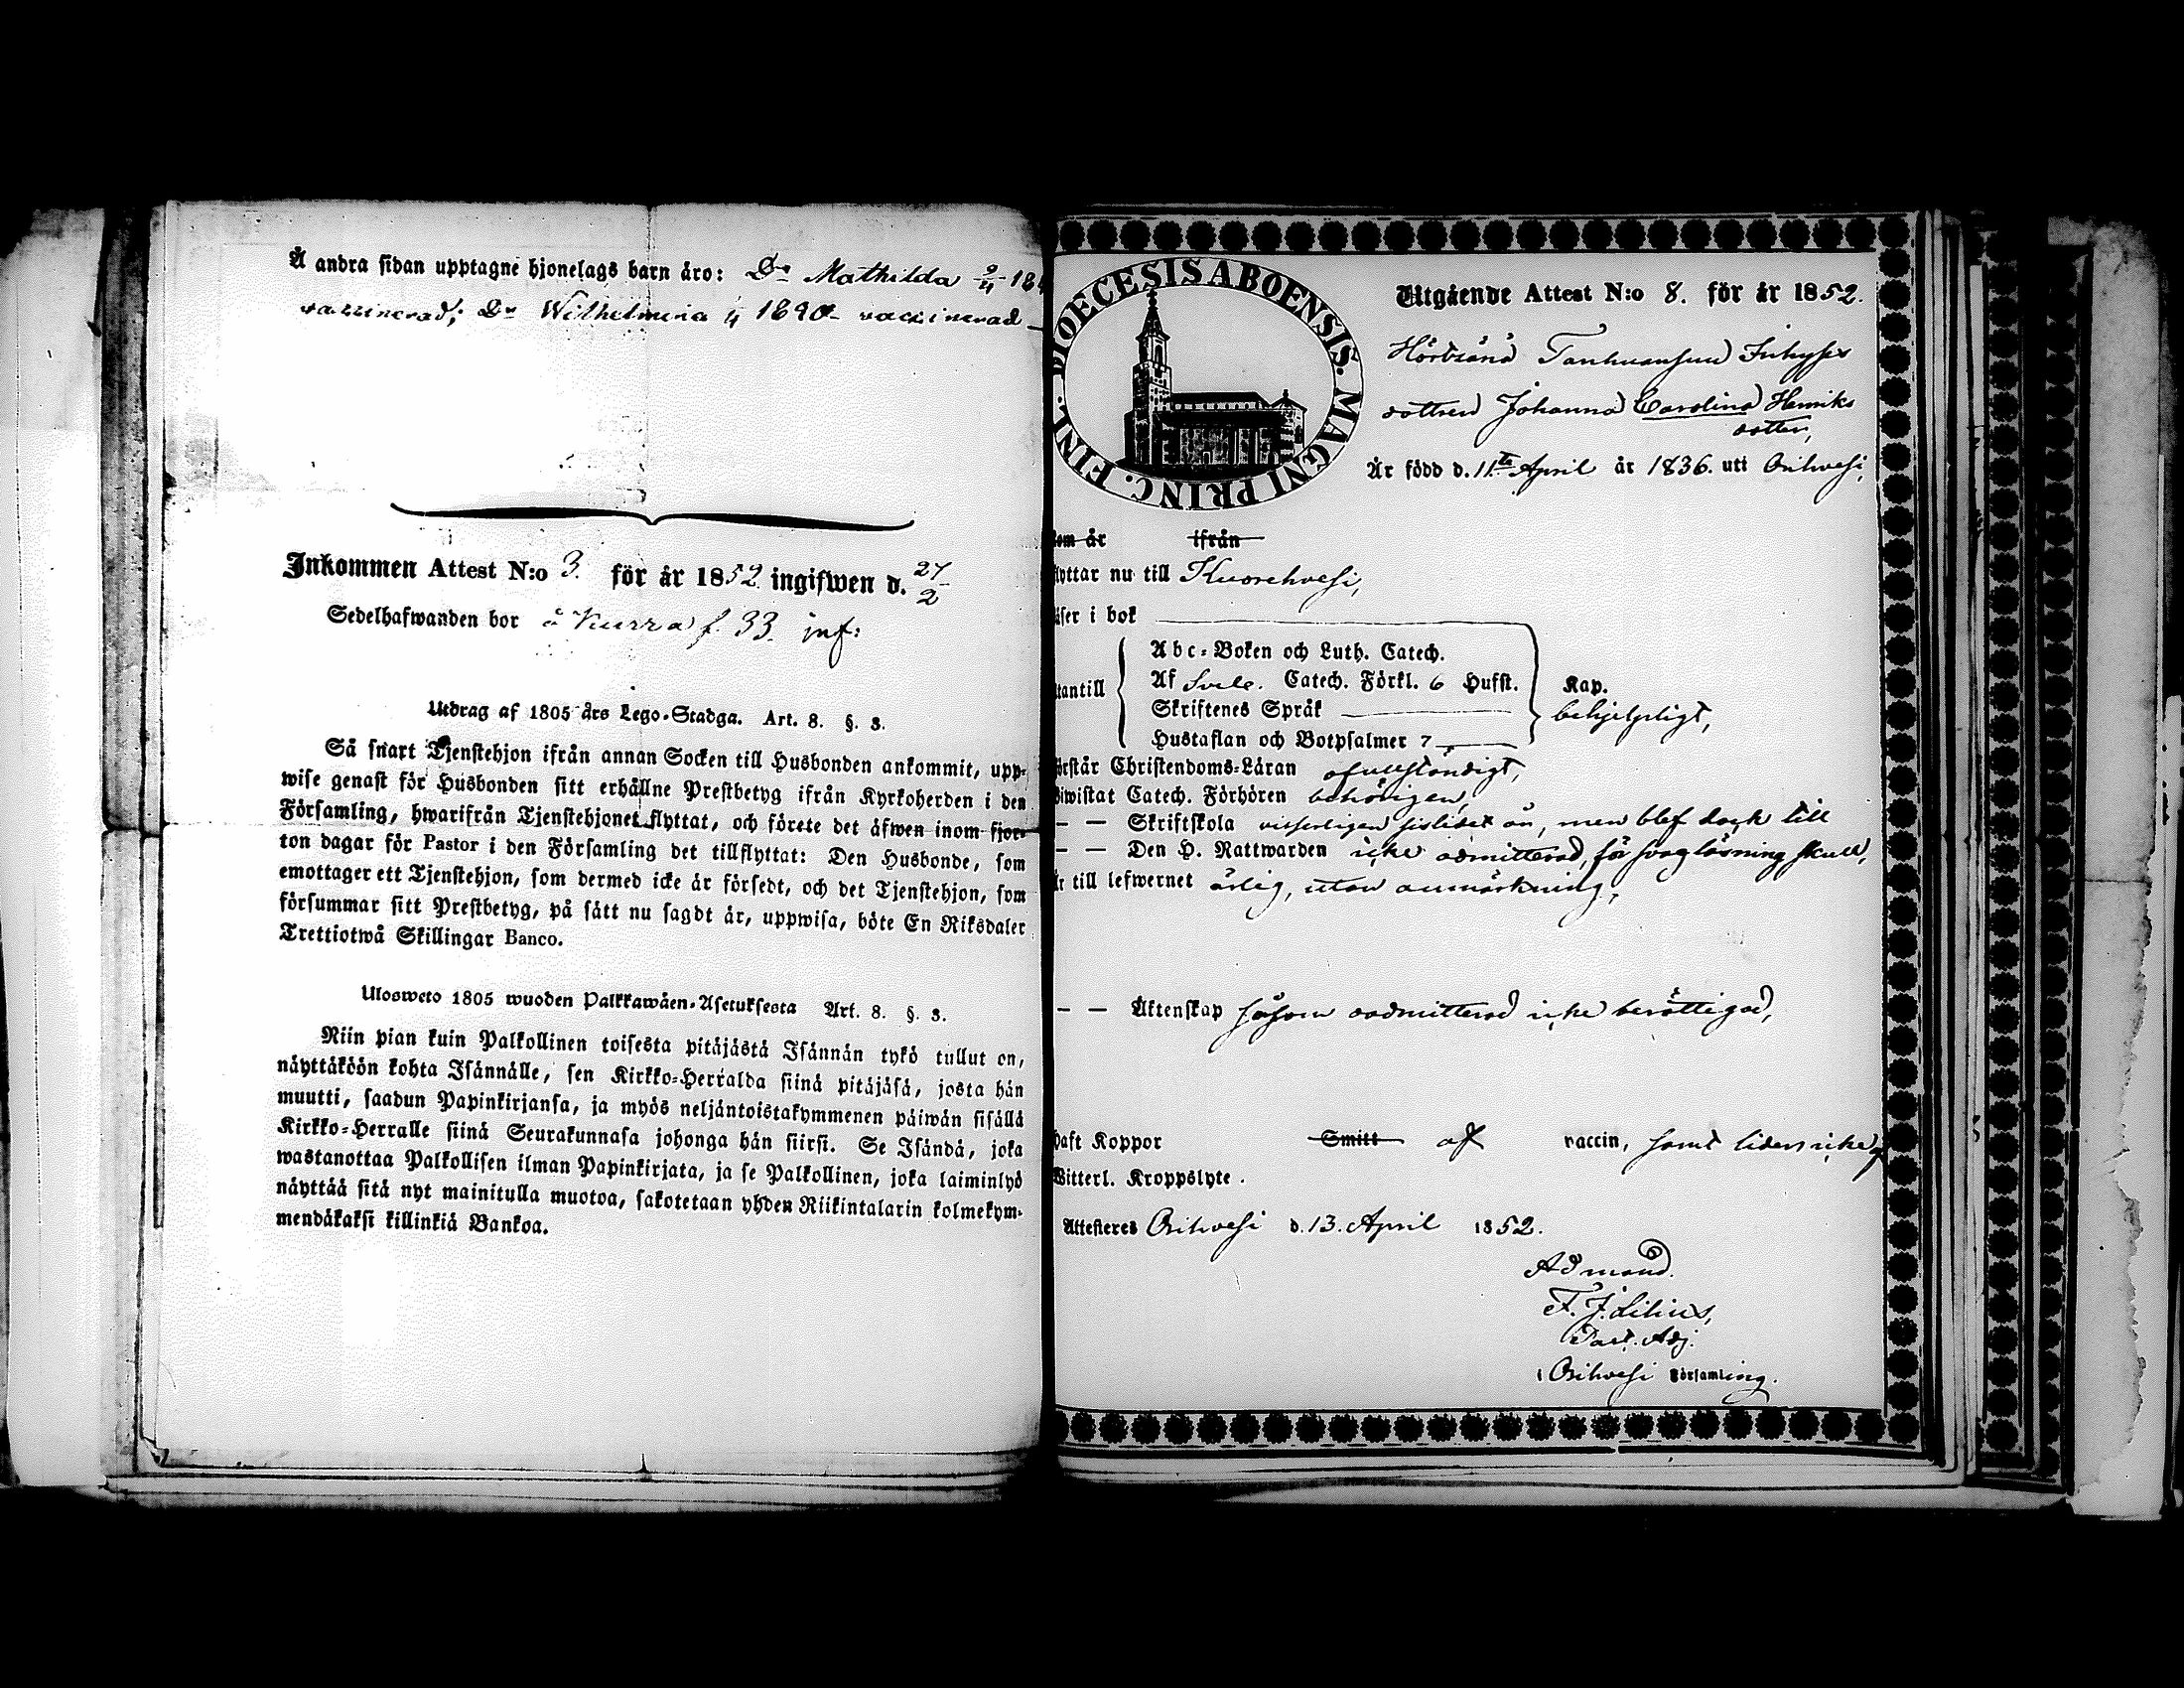 Å andra sidan upptagne hjonelags barn äro: Dr Mathilda 9/11 184
vaccinerad; Dr Wilhelmina 1840 vaccinerad
Inkommen Attest N:o 3. för år 1852 ingifwen d. 27/2
Sedelhafwanden bor å Kurra f. 33. inf:
Utdrag af 1805 års Lego-Stadga. Art. 8. §. 3.
Så snart Tjenstehjon ifrån annan Socken till Husbonden ankommit, upp-
wise genast för Husbonden sitt erhållne Prestbetyg ifrån Kyrkoherden i den
Församling, hwarifrån Tjenstehjonet flyttat, och förete det äfwen inom fjor-
ton dagar för Pastor i den Församling det tillflyttat: Den Husbonde, som
emottager ett Tjenstehjon, som dermed icke är försedt, och det Tjenstehjon, som
försummar sitt Prestbetyg, på sätt nu sagdt är, uppwisa, böte En Riksdaler
Trettiotwå Skillingar Banco.
Ulosweto 1805 wuoden Palkkawäen-Asetuksesta Art. 8. §. 3.
Niin pian kuin Palkollinen toisesta pitäjästä Isännän tykö tullut on,
näyttäköön kohta Isännälle, sen Kirkko-Herralda siinä pitäjäsä, josta hän
muutti, saadun Papinkirjansa, ja myös neljäntoistakymmenen päiwän sisällä
Kirkko-Herralle siinä Seurakunnasa johonga hän siirsi. Se Isändä, joka
wastanottaa Palkollisen ilman Papinkirjata, ja se Palkollinen, joka laiminlyö
näyttää sitä nyt mainitulla muotoa, sakotetaan yhden Riikintalarin kolmekym-
mendäkaksi killinkiä Bankoa.
DIOECESIS ABOENSIS. MAGNI PRINC. FINL.
Utgående Attest N:o 8. för år 1852.
Inhyses
dottren Johanna Carolina Henriks
dotter,
Är född d. 11te April år 1836. uti Orihvesi,
som är ifrån
flyttar nu till Kuorehvesi,
läser i bok
Abc-Boken och Luth. Catech.
Af Sveb. Catech. Förkl. 6 Hufst.
utantill Kap.
Skriftenes Språk
behjelpligt,
Hustaflan och Botpsalmer 7
förstår Christendoms-Läran ofullständigt,
biwistat Catech. Förhören behörigen,
— — Skriftskola men blef dock till
— — Den H. Nattwarden icke admitterad, för svag läsning skull,
är till lefwernet ärlig, utan anmärkning,
— — Äktenskap såsom oadmitterad icke berättigad,
haft Koppor Smitt af vaccin, samt lider icke af
Witterl. Kroppslyte.
Attesteres Orihvesi d. 13. April 1852.
Ad mand.
F. J. Lilius,
Past. Adj.
i Orihvesi Församling.